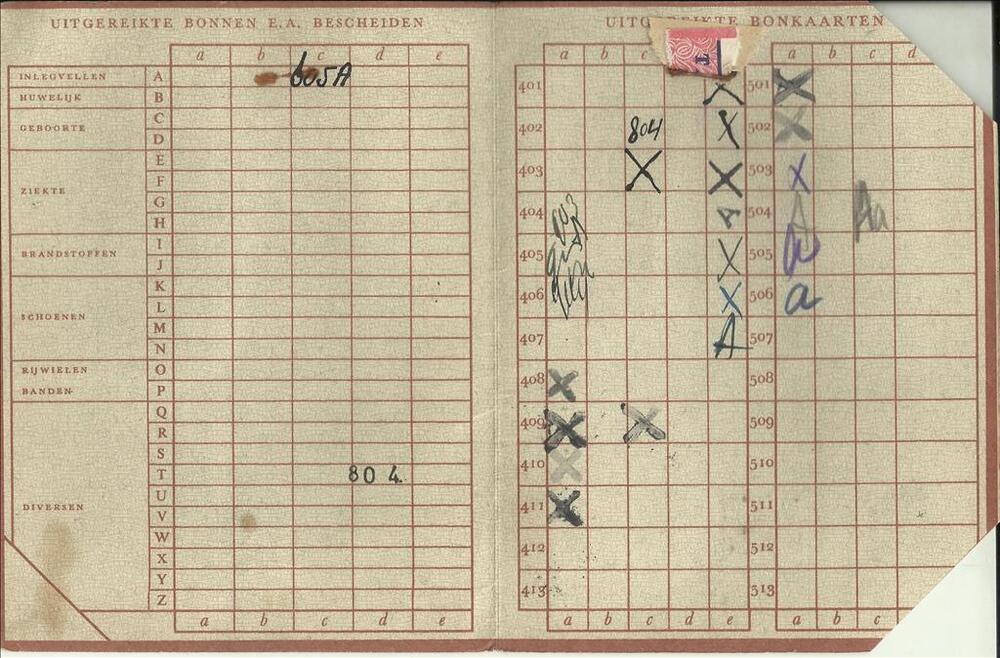 UITGEREIKTE BONNEN E.A. BESCHEIDEN
a b c d e
605A
INLEGVELLEN A
HUWELIJK B
C
GEBOORTE
D
E
F
ZIEKTE
G
H
I
BRANDSTOFFEN
J
K
L
SCHOENEN
M
N
RIJWIELEN O
BANDEN P
Q
R
S
T 80 4.
U
DIVERSEN V
W
X
Y
Z
a b c d e
BONKAARTEN
a b c d a b c d
401 X 501 X
402 804 X 502 X
403 X X 503 X
404 A 504 A Aa
405 X 505 a
406 X 506 a
407 A 507
408 X 508
409 X X 509
410 X 510
411 X 511
412 512
413 513
a b c d e a b c